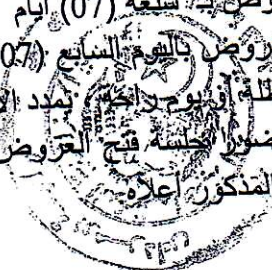 وض بـ سبعة (07) أيام
روض باليوم السابع (07
طلة أو يوم راحة ، يمدد الا
ضور جلسة فتح العروض
المذكور أعلاه